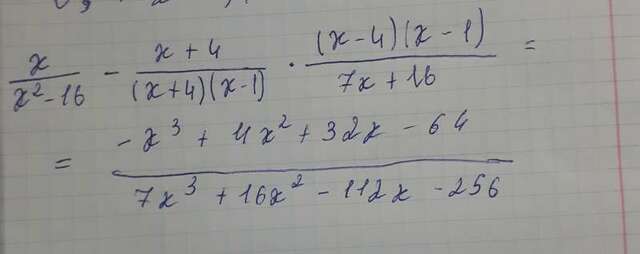 x/(x²-16) - (x+4)/((x+4)(x-1)) · ((x-4)(x-1))/(7x+16) =
= (-x³+4x²+32x-64)/(7x³+16x²-112x-256)